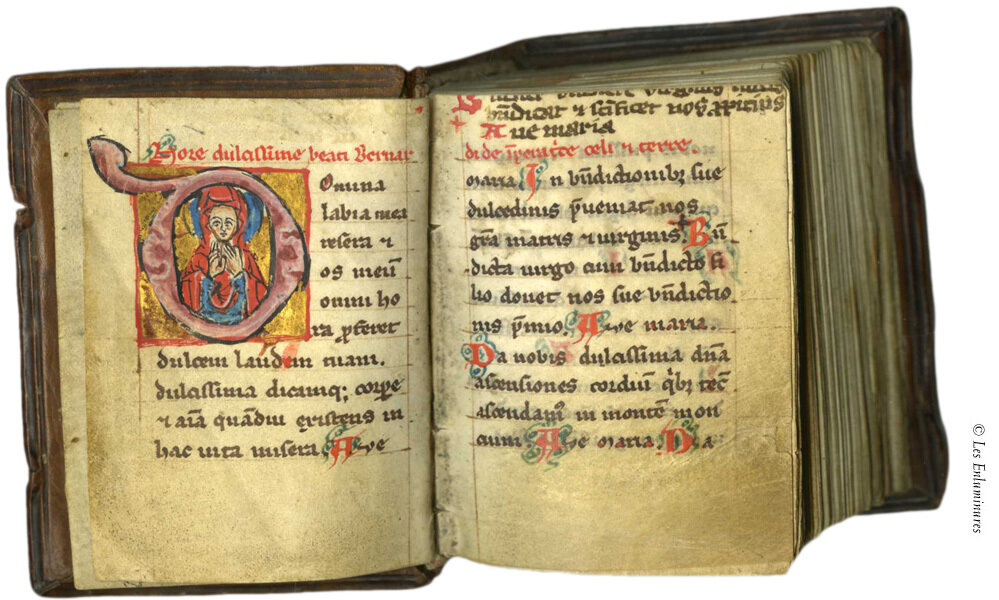 Hore dulcissime beati Bernar
Omina
labia mea
resera ⁊
os meū
omni ho
ra ꝓferet
dulcem laudem tuam.
dulcissima dicamq; corpe
⁊ aīa quādiu existens in
hac vita misera. Ave
bn̄dicat ⁊ sc̄ificet nos
Ave maria
di de celi ⁊ terre.
maria. In bn̄dictionibꝫ sue
dulcedinis p̄veniat nos
gr̄a matris ⁊ virginis. Bn̄
dicta virgo cum bn̄dicto fi
lio donet nos sue bn̄dictio
nis p̄mio. Ave maria.
Da nobis dulcissima dn̄a
ascensiones cordiū qͥbꝫ tec̄
ascendamꝰ in montē mon
cium. Ave maria. Da
© Les Enluminures